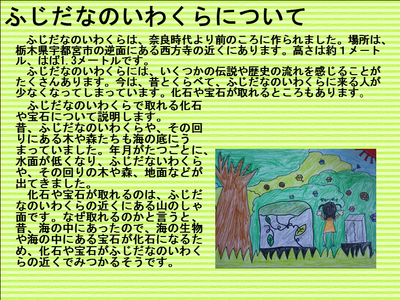 ふじだなのいわくらについて
ふじだなのいわくらは、奈良時代より前のころに作られました。場所は、
栃木県宇都宮市の逆面にある西方寺の近くにあります。高さは約１メート
ル、はば1.3メートルです。
ふじだなのいわくらには、いくつかの伝説や歴史の流れを感じることが
たくさんあります。今は、昔とくらべて、ふじだなのいわくらに来る人が
少なくなってしまっています。化石や宝石が取れるところもあります。
ふじだなのいわくらで取れる化石
や宝石について説明します。
昔、ふじだなのいわくらや、その回
りにある木や森たちも海の底にう
まっていました。年月がたつごとに、
水面が低くなり、ふじだないわくら
や、その回りの木や森、地面などが
出てきました。
化石や宝石が取れるのは、ふじだ
なのいわくらの近くにある山のしゃ
面です。なぜ取れるのかと言うと、
昔、海の中にあったので、海の生物
や海の中にある宝石が化石になるた
め、化石や宝石がふじだなのいわく
らの近くでみつかるそうです。